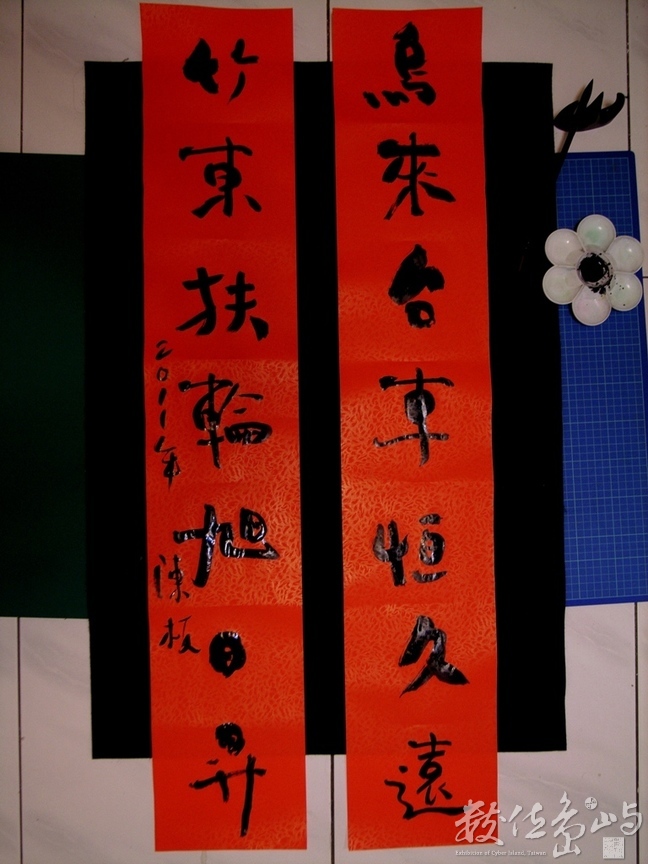 烏來台車恒久遠
竹東扶輪旭日昇
2011年
陳楨
數位島嶼
Exhibition of Cyber Island, Taiwan